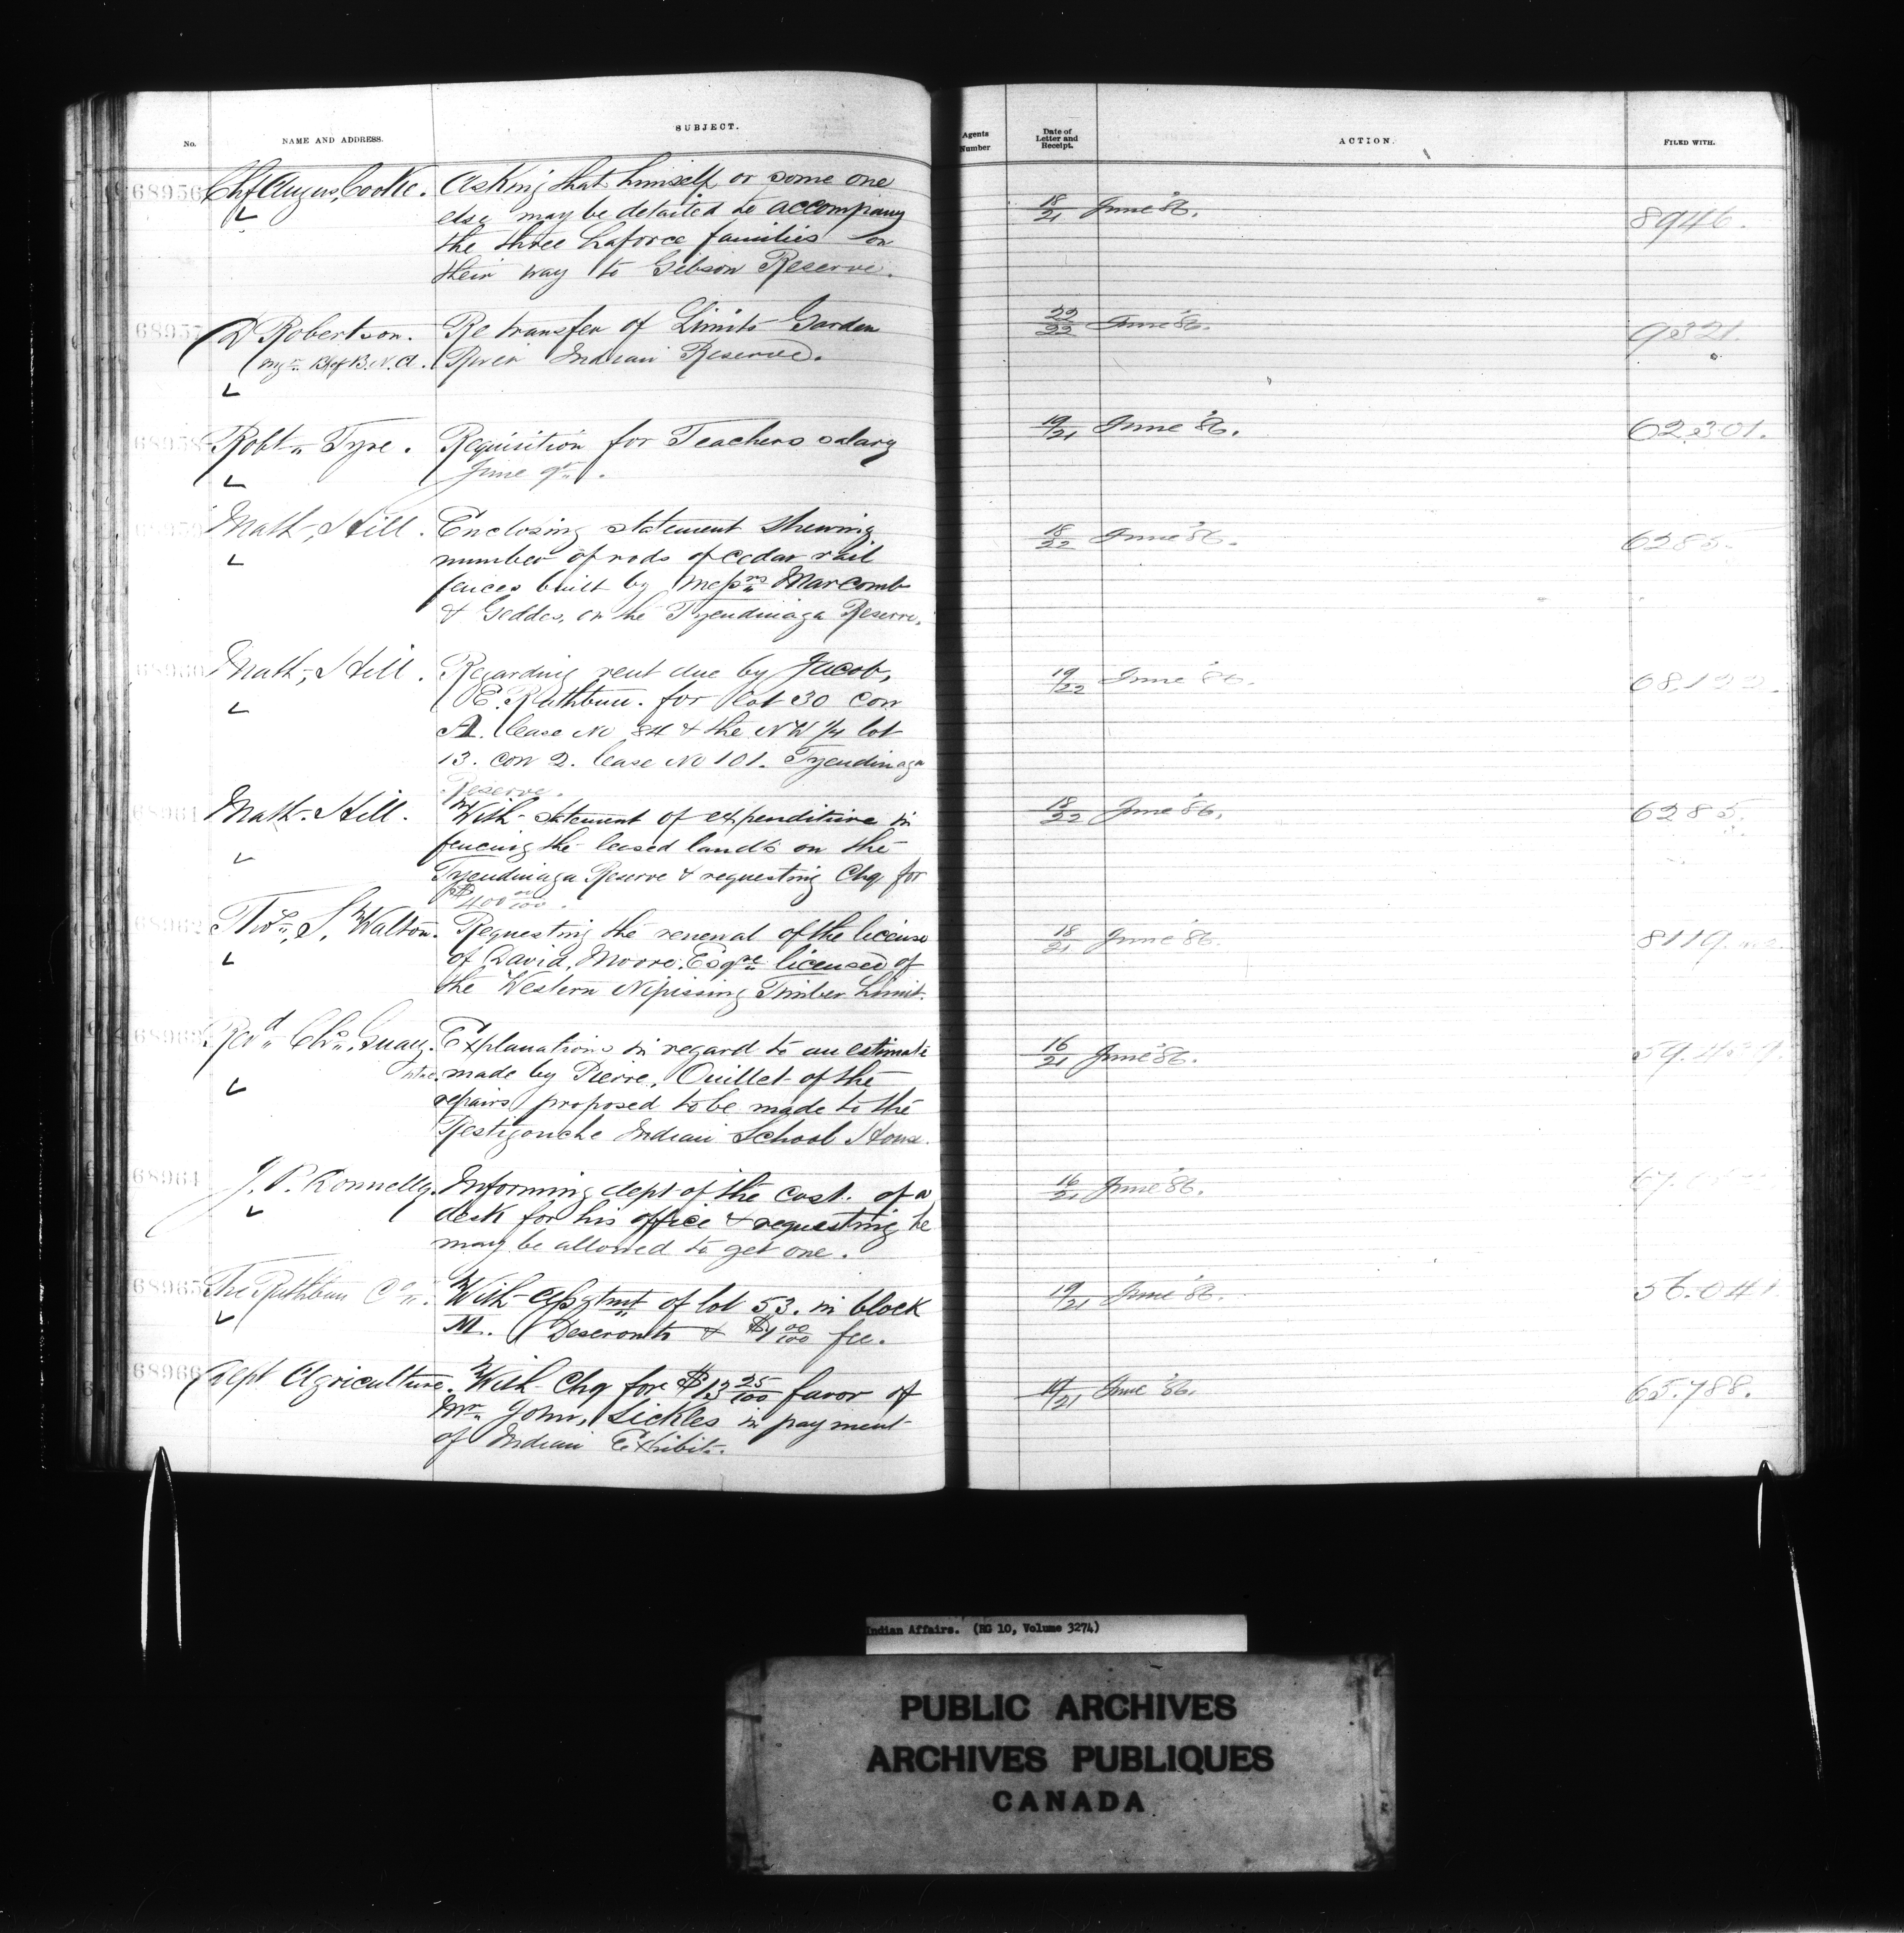 No. NAME AND ADDRESS. SUBJECT. Agents Number Date of Letter and Receipt. ACTION. FILED WITH.
68956 Chf Angus, Cooke. Asking that himself or some one 18/21 June '86. 8946.
else may be detailed to accompany
the three Laforce families on
their way to Gibson Reserve.
68957 D Robertson. Re transfer of Limits Garden 22/22 June '86. 9321.
Mgr. Bk of B. N. A. River Indian Reserve.
68958 Robt. Tyre. Requisition for Teachers salary 19/21 June '86. 62,301.
June qr.
68959 Math, Hill. Enclosing statement shewing 18/22 June '86. 6285.
number of rods of cedar rail
fences built by Messrs Marcomb
& Geddes, on the Tyendinaga Reserve.
68960 Math, Hill. Regarding rent due by Jacob, 19/22 June '86.
E. Rathbun. for lot 30 con
A. lease No 84 & the NW 1/4 lot
13. con 2. lease No 101. Tyendinaga
Reserve.
68961 Math. Hill. With statement of expenditure in 18/22 June '86. 6285.
fencing the leased lands on the
Tyendinaga Reserve & requesting Chq for
$400 00/100.
68962 Thos. S. Walton. Requesting the renewal of the license 18/21 June '86. 8119.
of David, Moore. Esqre licensed of
the Western Nipissing Timber Limit.
68963 Revd Chs. Guay. Explanations in regard to an estimate 16/21 June '86.
ptre. made by Pierre, Ouillet of the
repairs proposed to be made to the
Restigouche Indian School House.
68964 J. P. Konnelly. Informing dept of the cost. of a 16/21 June '86.
desk for his office & requesting he
may be allowed to get one.
68965 The Rathbun Co. With Assgtmt of lot 53. in block 19/21 June '86. 56.041.
M. Deseronto & $1 00/100 fee.
68966 Dept Agriculture. With Chq for $13 25/100 favor of 19/21 June '86. 65.788.
Mr. John, Sickles in payment
of Indian Exhibit.
Indian Affairs. (RG 10, Volume 3274)
PUBLIC ARCHIVES
ARCHIVES PUBLIQUES
CANADA